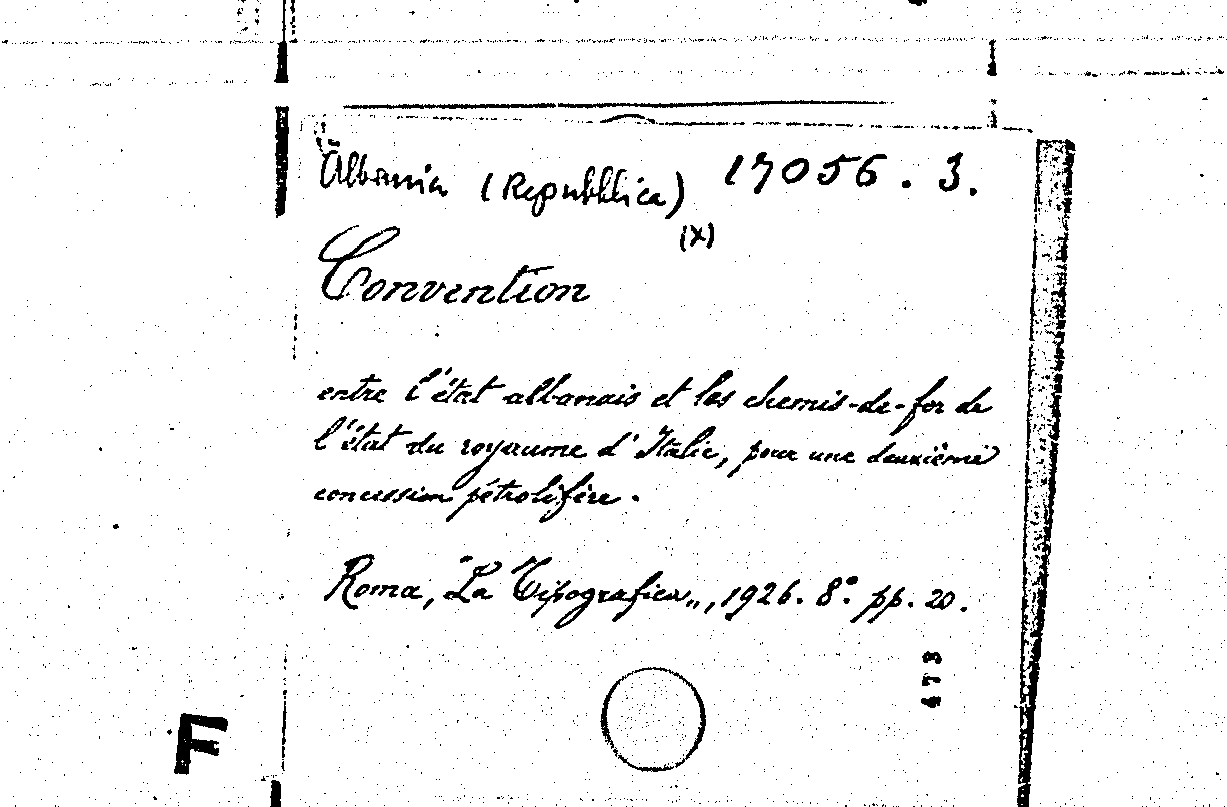 Albania (Repubblica) 17056.3.
(X)
Convention
entre l'état albanais et les chemis-de-fer de
l'état du royaume d'Italie, pour une deuxième
concession pétrolifère.
Roma, "La Tipografica", 1926. 8.° pp. 20.
473
F